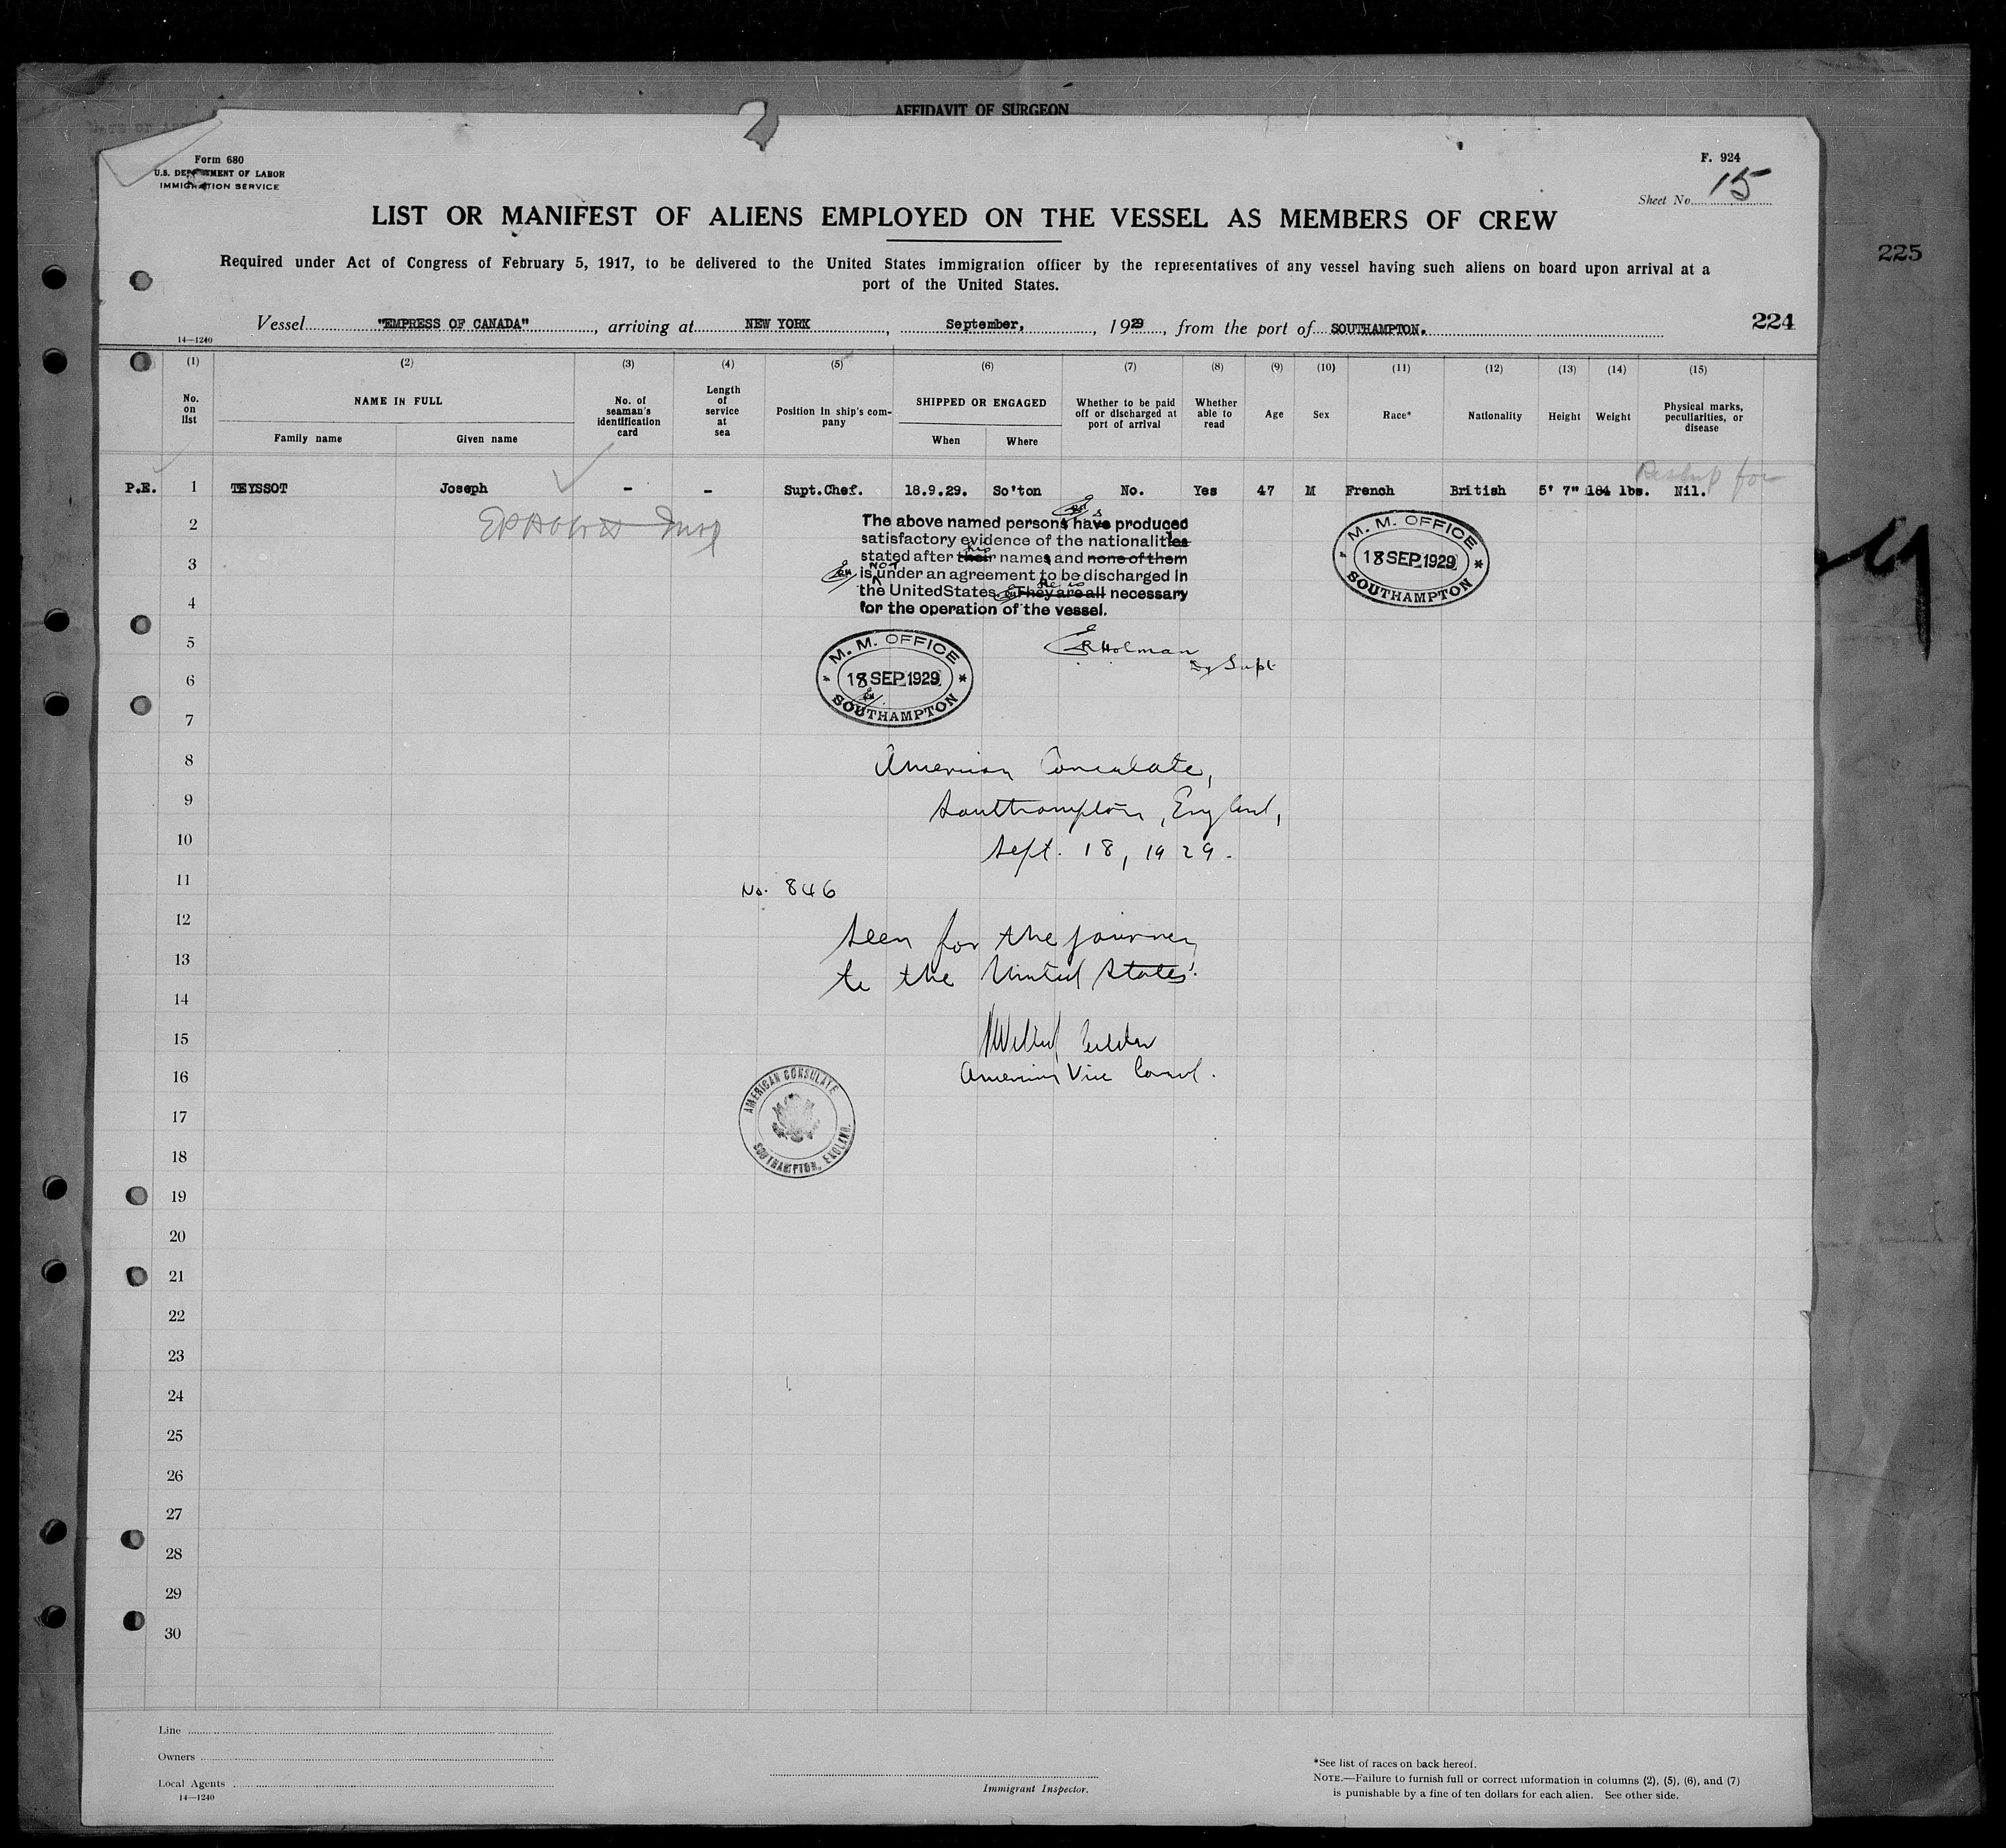 AFFIDAVIT OF SURGEON
Form 680
U.S. DEPARTMENT OF LABOR
IMMIGRATION SERVICE
F. 924
Sheet No. 15
LIST OR MANIFEST OF ALIENS EMPLOYED ON THE VESSEL AS MEMBERS OF CREW
225
Required under Act of Congress of February 5, 1917, to be delivered to the United States immigration officer by the representatives of any vessel having such aliens on board upon arrival at a
port of the United States.
Vessel "EMPRESS OF CANADA", arriving at NEW YORK, September, 1929, from the port of SOUTHAMPTON.
224
14—1240
(1) (2) (3) (4) (5) (6) (7) (8) (9) (10) (11) (12) (13) (14) (15)
No. on list
NAME IN FULL
Family name
Given name
No. of seaman's identification card
Length of service at sea
Position in ship's company
SHIPPED OR ENGAGED
When
Where
Whether to be paid off or discharged at port of arrival
Whether able to read
Age
Sex
Race*
Nationality
Height
Weight
Physical marks, peculiarities, or disease
P.E. 1 TEYSSOT Joseph - - Supt.Chef. 18.9.29. So'ton No. Yes 47 M French British 5' 7" 184 lbs. Nil.
for
2
The above named persons has produced
satisfactory evidence of the nationalities
stated after their his names and none of them
is NOT under an agreement to be discharged in
the United States. They are all he is necessary
for the operation of the vessel.
M. M. OFFICE
18 SEP 1929
SOUTHAMPTON
3
4
5
ERHolman
Dy Supt
M. M. OFFICE
18 SEP 1929
SOUTHAMPTON
6
7
8
American Consulate,
9
Southampton, England,
10
Sept. 18, 1929.
11
No. 846
12
Seen for the journey
13
to the United States.
14
15
16
American Vice Consul.
AMERICAN CONSULATE
SOUTHAMPTON, ENGLAND.
17
18
19
20
21
22
23
24
25
26
27
28
29
30
Line
Owners
Local Agents
14—1240
Immigrant Inspector.
*See list of races on back hereof.
NOTE.—Failure to furnish full or correct information in columns (2), (5), (6), and (7)
is punishable by a fine of ten dollars for each alien. See other side.